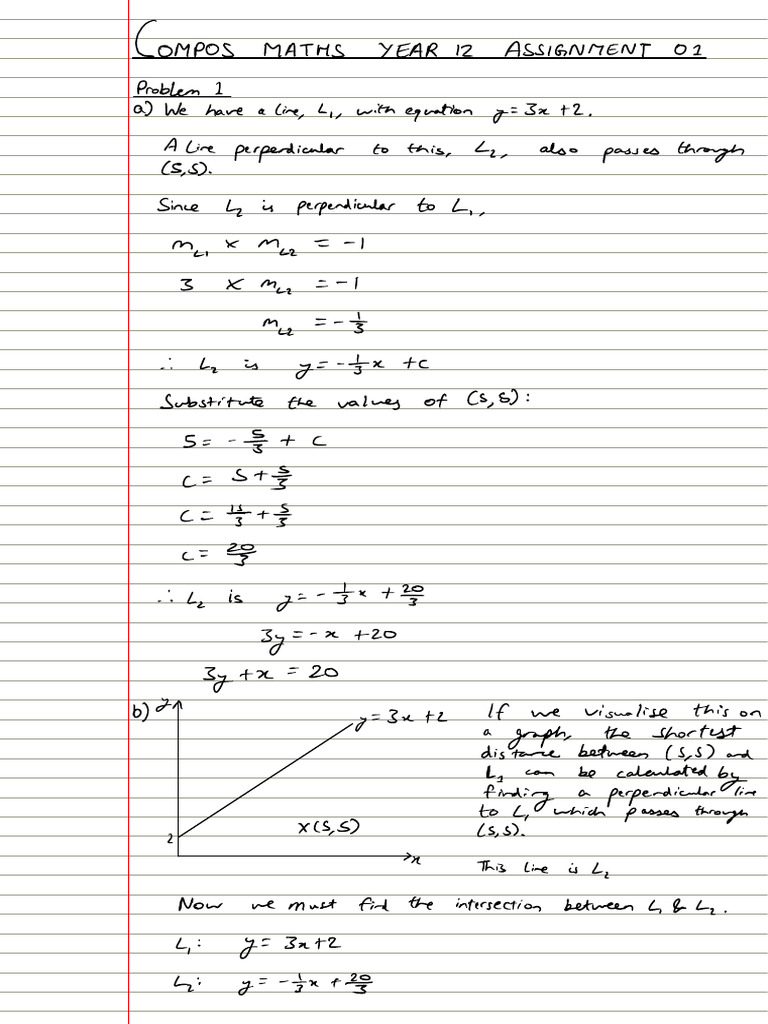 COMPOS MATHS YEAR 12 ASSIGNMENT 01
Problem 1
a) We have a line, L₁, with equation y = 3x + 2.
A line perpendicular to this, L₂, also passes through
(5,5).
Since L₂ is perpendicular to L₁,
m_L1 × m_L2 = -1
3 × m_L2 = -1
m_L2 = -1/3
∴ L₂ is y = -1/3 x + c
Substitute the values of (5,5):
5 = -5/3 + c
c = 5 + 5/3
c = 15/3 + 5/3
c = 20/3
∴ L₂ is y = -1/3 x + 20/3
3y = -x + 20
3y + x = 20
b)
y
y = 3x + 2
2
X (5,5)
x
If we visualise this on
a graph, the shortest
distance between (5,5) and
L₁ can be calculated by
finding a perpendicular line
to L₁ which passes through
(5,5).
This line is L₂
Now we must find the intersection between L₁ & L₂.
L₁: y = 3x + 2
L₂: y = -1/3 x + 20/3